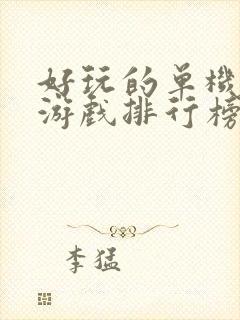 好玩的单機
游戏排行榜
李猛